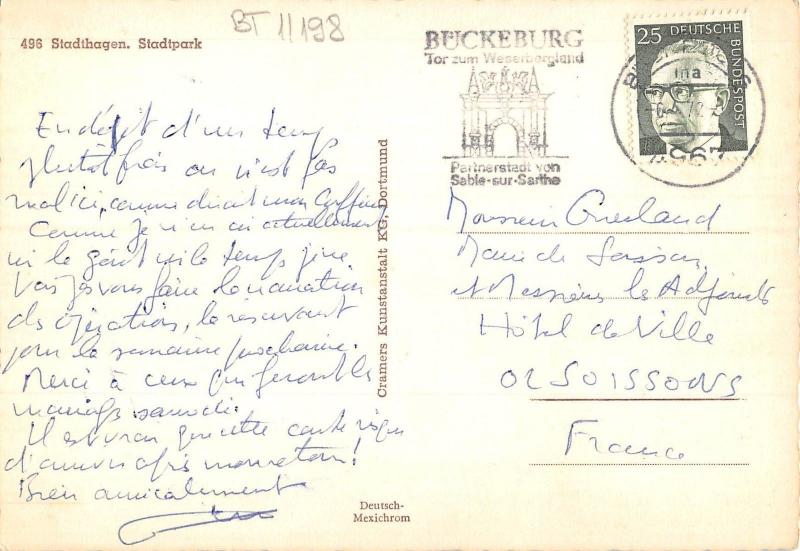 BT 1/198
496 Stadthagen. Stadtpark
BÜCKEBURG
Tor zum Weserbergland
Partnerstadt von
Sable-sur-Sarthe
25 DEUTSCHE
BUNDESPOST
En dépit d'un temps
plutôt frais on n'est pas
mal ici, comme dirait mon
Comme je n'en ai actuellement
ni le goût ni le temps je ne
vais pas vous faire la narration
des opérations, la réservant
pour la semaine prochaine.
Merci à ceux qui feront les
mariages samedi.
Il est vrai que cette carte risque
d'arriver après mon retour!
Bien amicalement
Cramers Kunstanstalt KG, Dortmund
Deutsch-
Mexichrom
Monsieur
Maire de Soissons
et Messieurs les Adjoints
Hôtel de Ville
02 SOISSONS
France